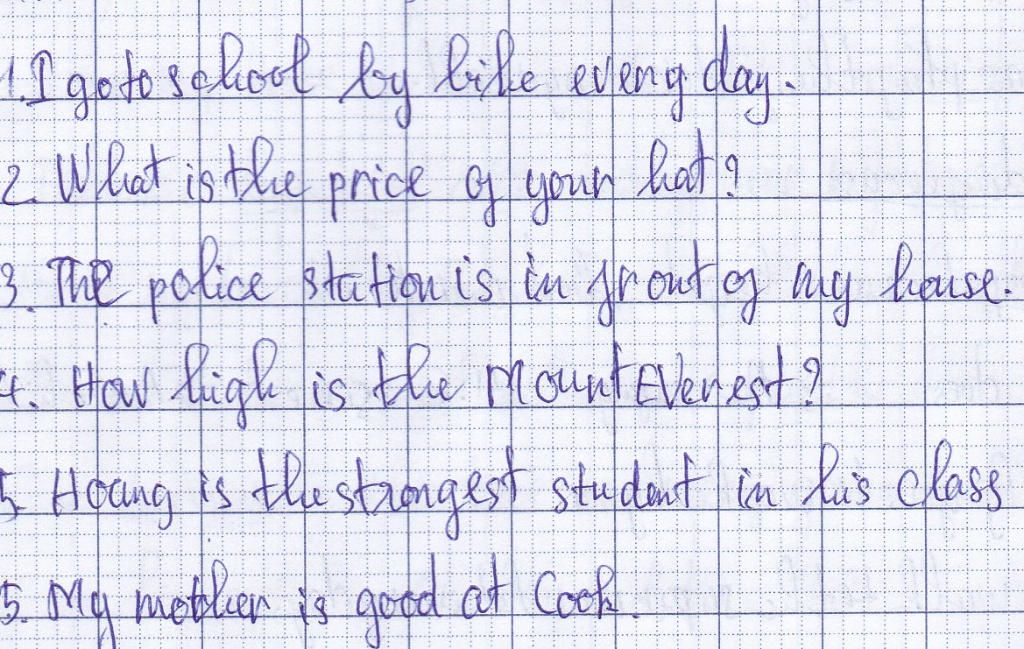 1. I go to school by bike every day.
2. What is the price of your hat?
3. The police station is in front of my house.
4. How high is the Mount Everest?
5. Hoang is the strongest student in his class
5. My mother is good at Cook.